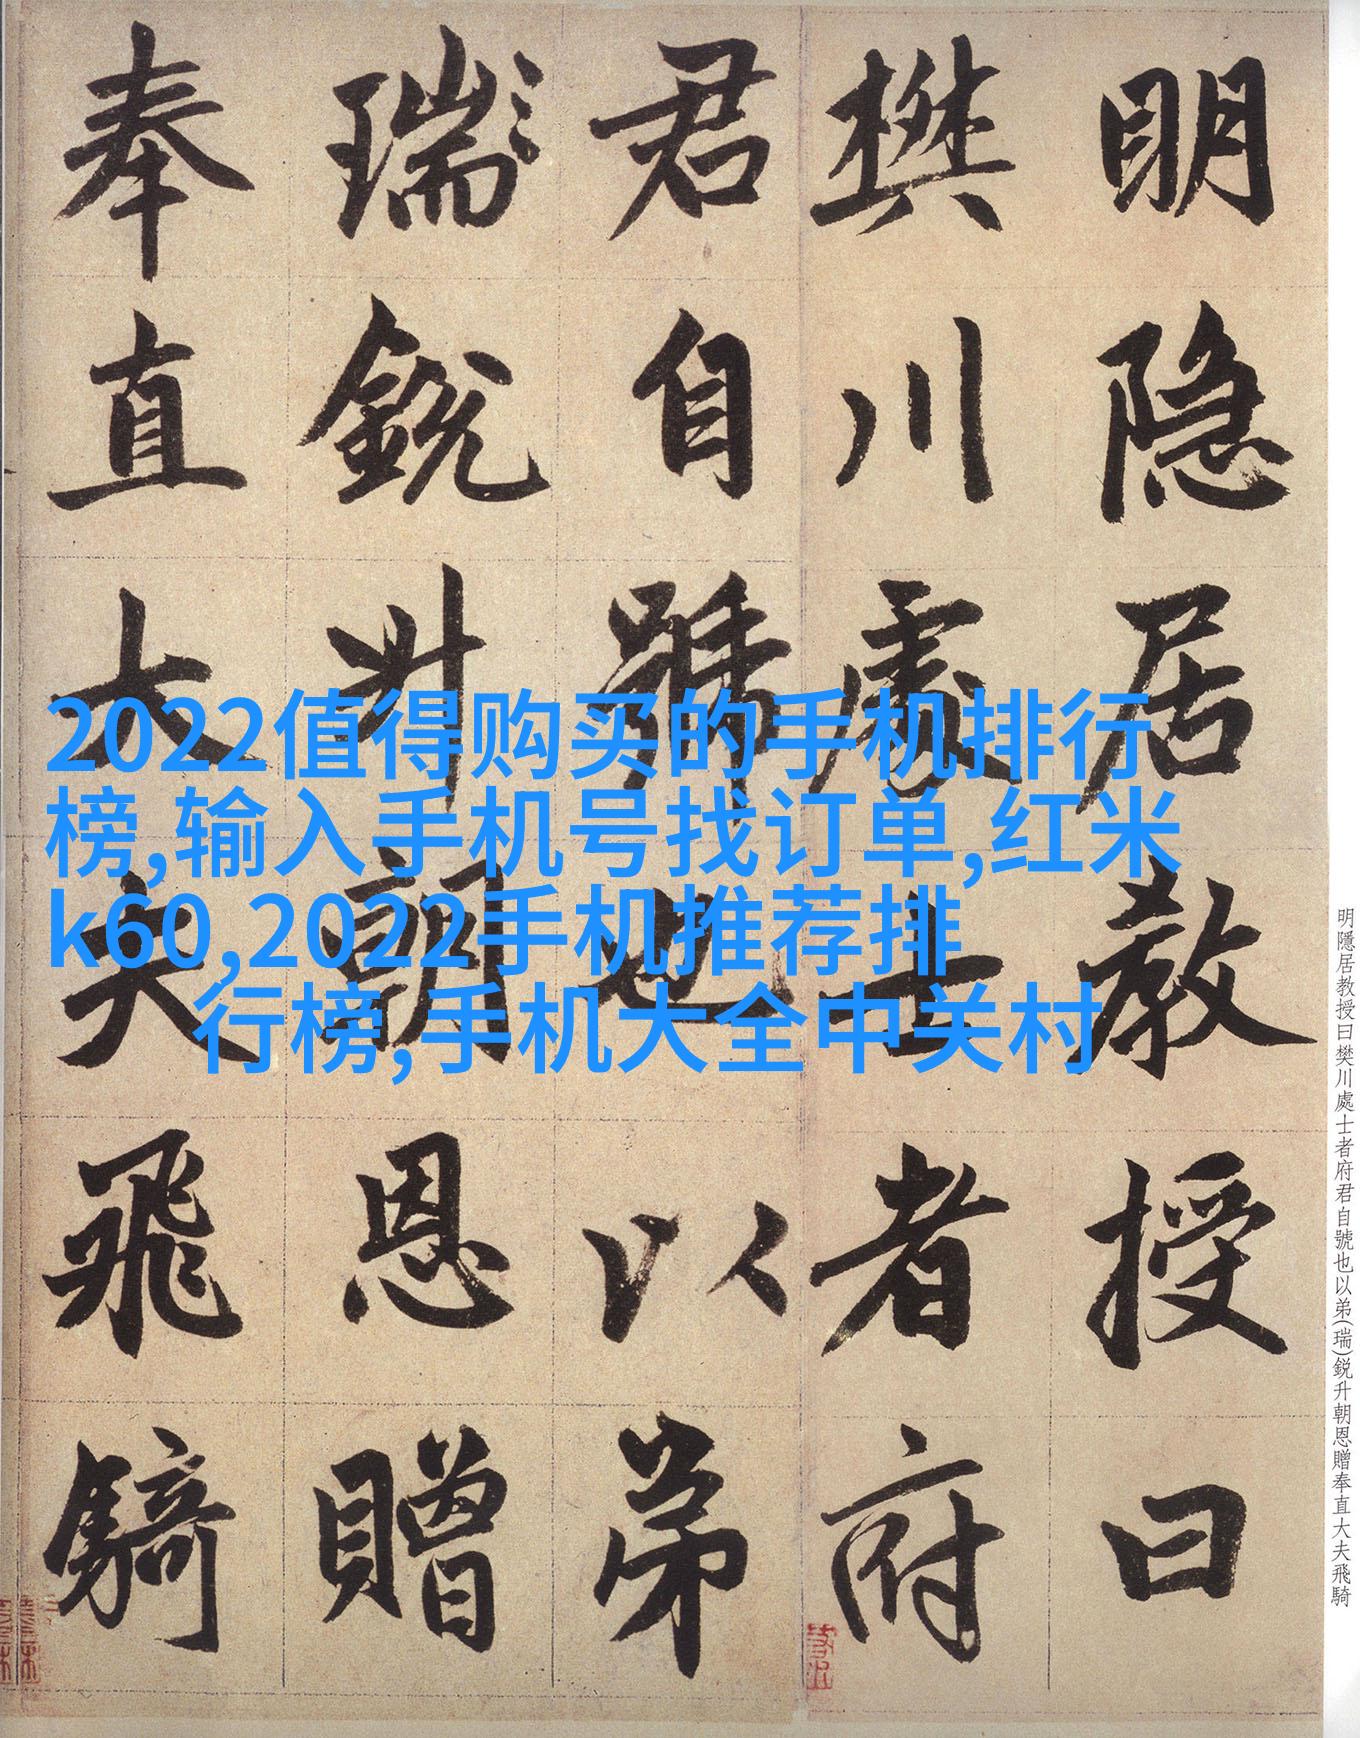 明隐居教授曰
樊川處士者府
君自號也以弟
瑞銳升朝恩贈
奉直大夫飛騎
2022值得购买的手机排行
榜,输入手机号找订单,红米
k60,2022手机推荐排
行榜,手机大全中关村
明隱居教授曰樊川處士者府君自號也以弟(瑞)鋭升朝恩贈奉直大夫飛騎